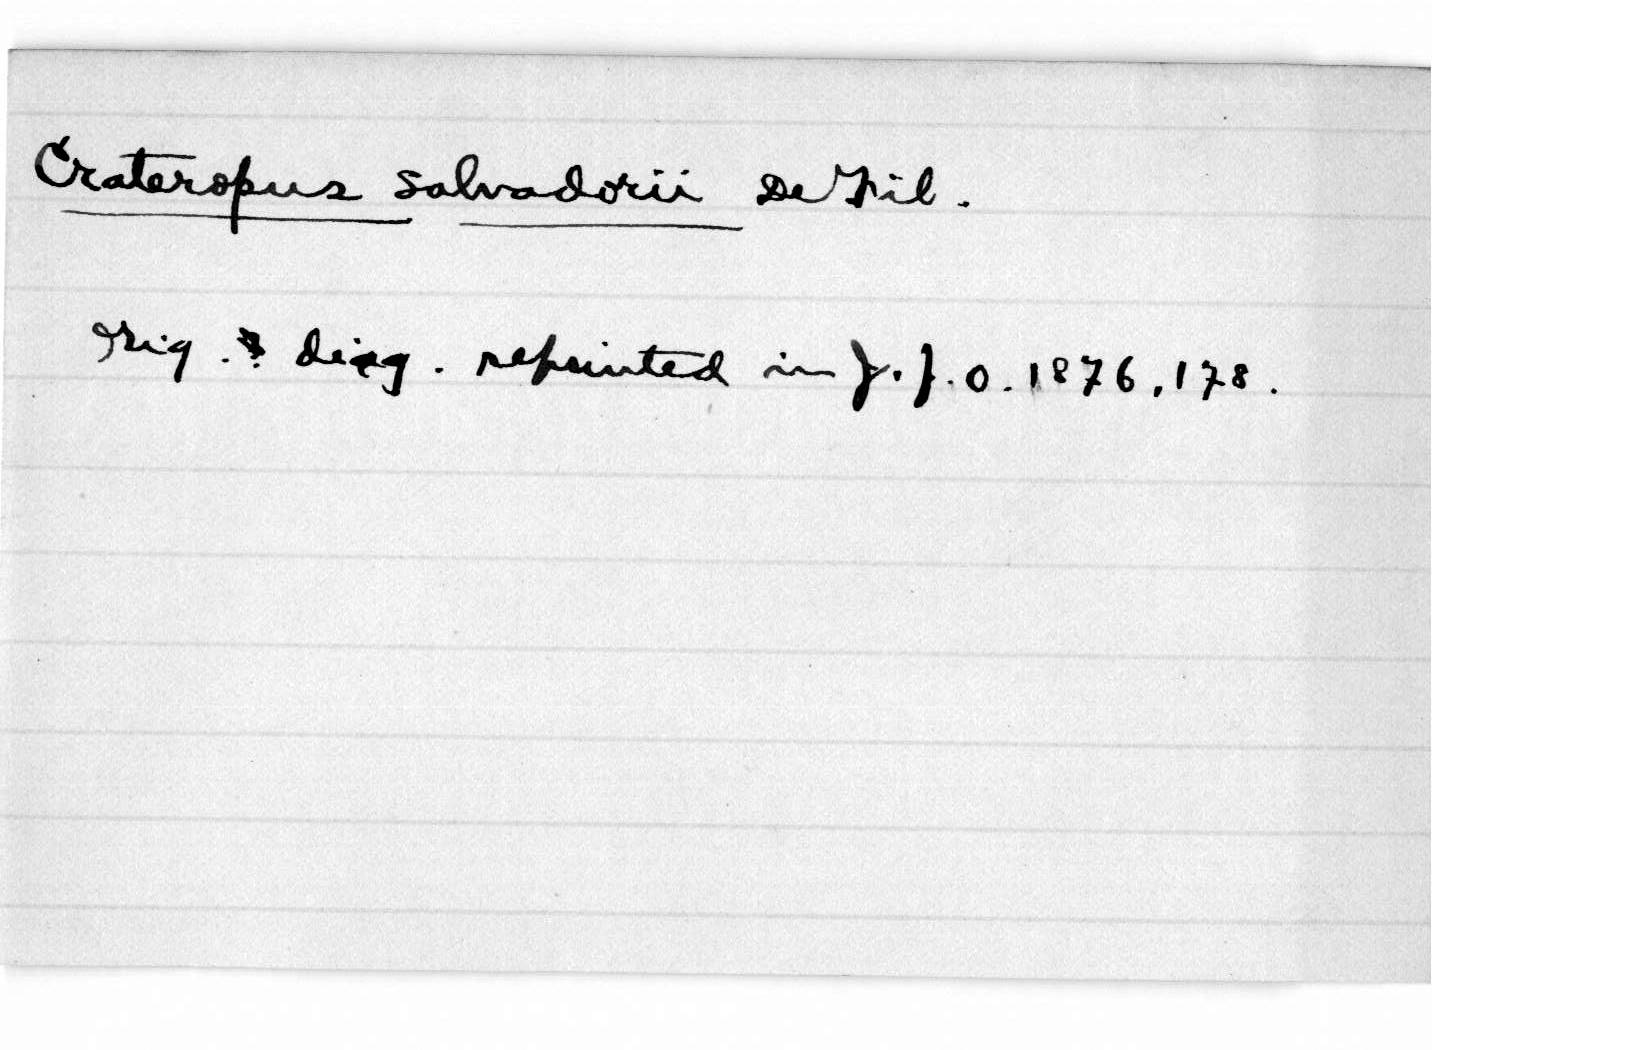 Crateropus salvadorii De Fil.
Orig. diag. reprinted in J. f. O. 1876, 178.